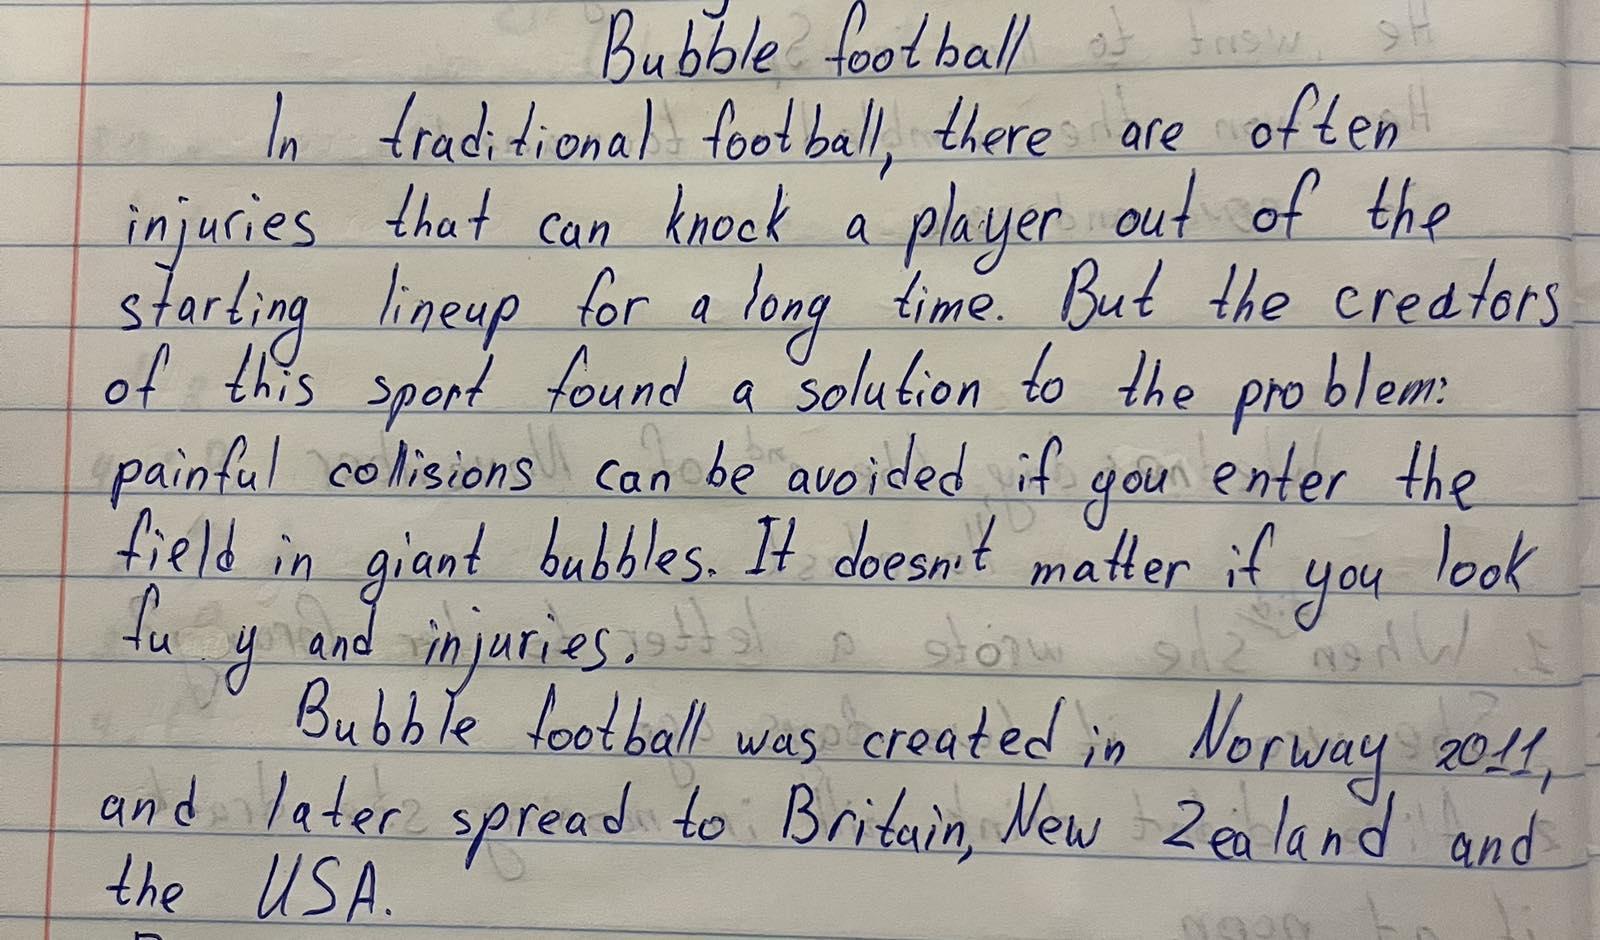 Bubble football
In traditional football, there are often
injuries that can knock a player out of the
starting lineup for a long time. But the creators
of this sport found a solution to the problem:
painful collisions can be avoided if you enter the
field in giant bubbles. It doesn't matter if you look
fu y and injuries.
Bubble football was created in Norway 2011,
and later spread to Britain, New Zealand and
the USA.